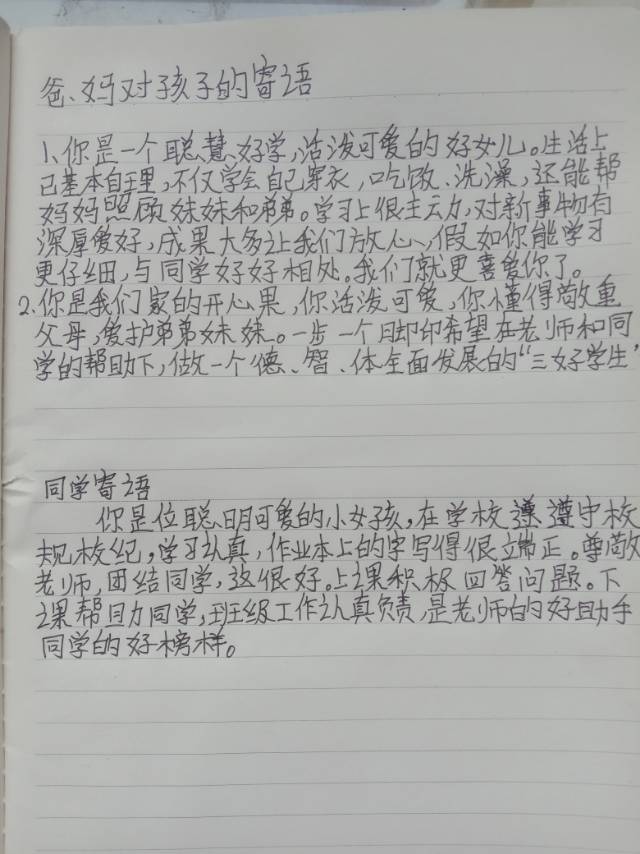 爸、妈对孩子的寄语
1、你是一个聪慧、好学,活泼可爱的好女儿。生活上
已基本自理,不仅学会自己穿衣,吃饭、洗澡,还能帮
妈妈照顾妹妹和弟弟。学习上很主动,对新事物有
深厚爱好,成果大多让我们放心、假如你能学习
更仔细,与同学好好相处。我们就更喜爱你了。
2、你是我们家的开心果,你活泼可爱,你懂得敬重
父母,爱护弟弟妹妹。一步一个脚印希望在老师和同
学的帮助下,做一个德、智、体全面发展的“三好学生”
同学寄语
你是位聪明可爱的小女孩,在学校遵守校
规校纪,学习认真,作业本上的字写得很端正。尊敬
老师,团结同学,这很好。上课积极回答问题。下
课帮助同学,班级工作认真负责,是老师的好助手
同学的好榜样。